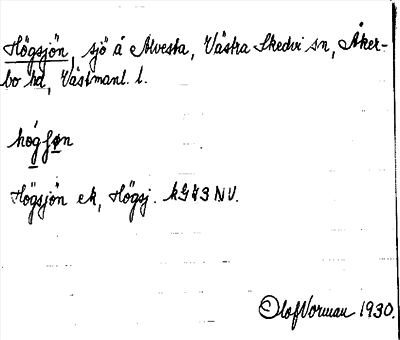 Högsjön, sjö å Alvesta, Västra Skedvi sn, Åker-
bo hd, Västmanl. l.
hö́gʃøn
Högsjön ek, Högsj. kG43 NV.
Olof Norman 1930.